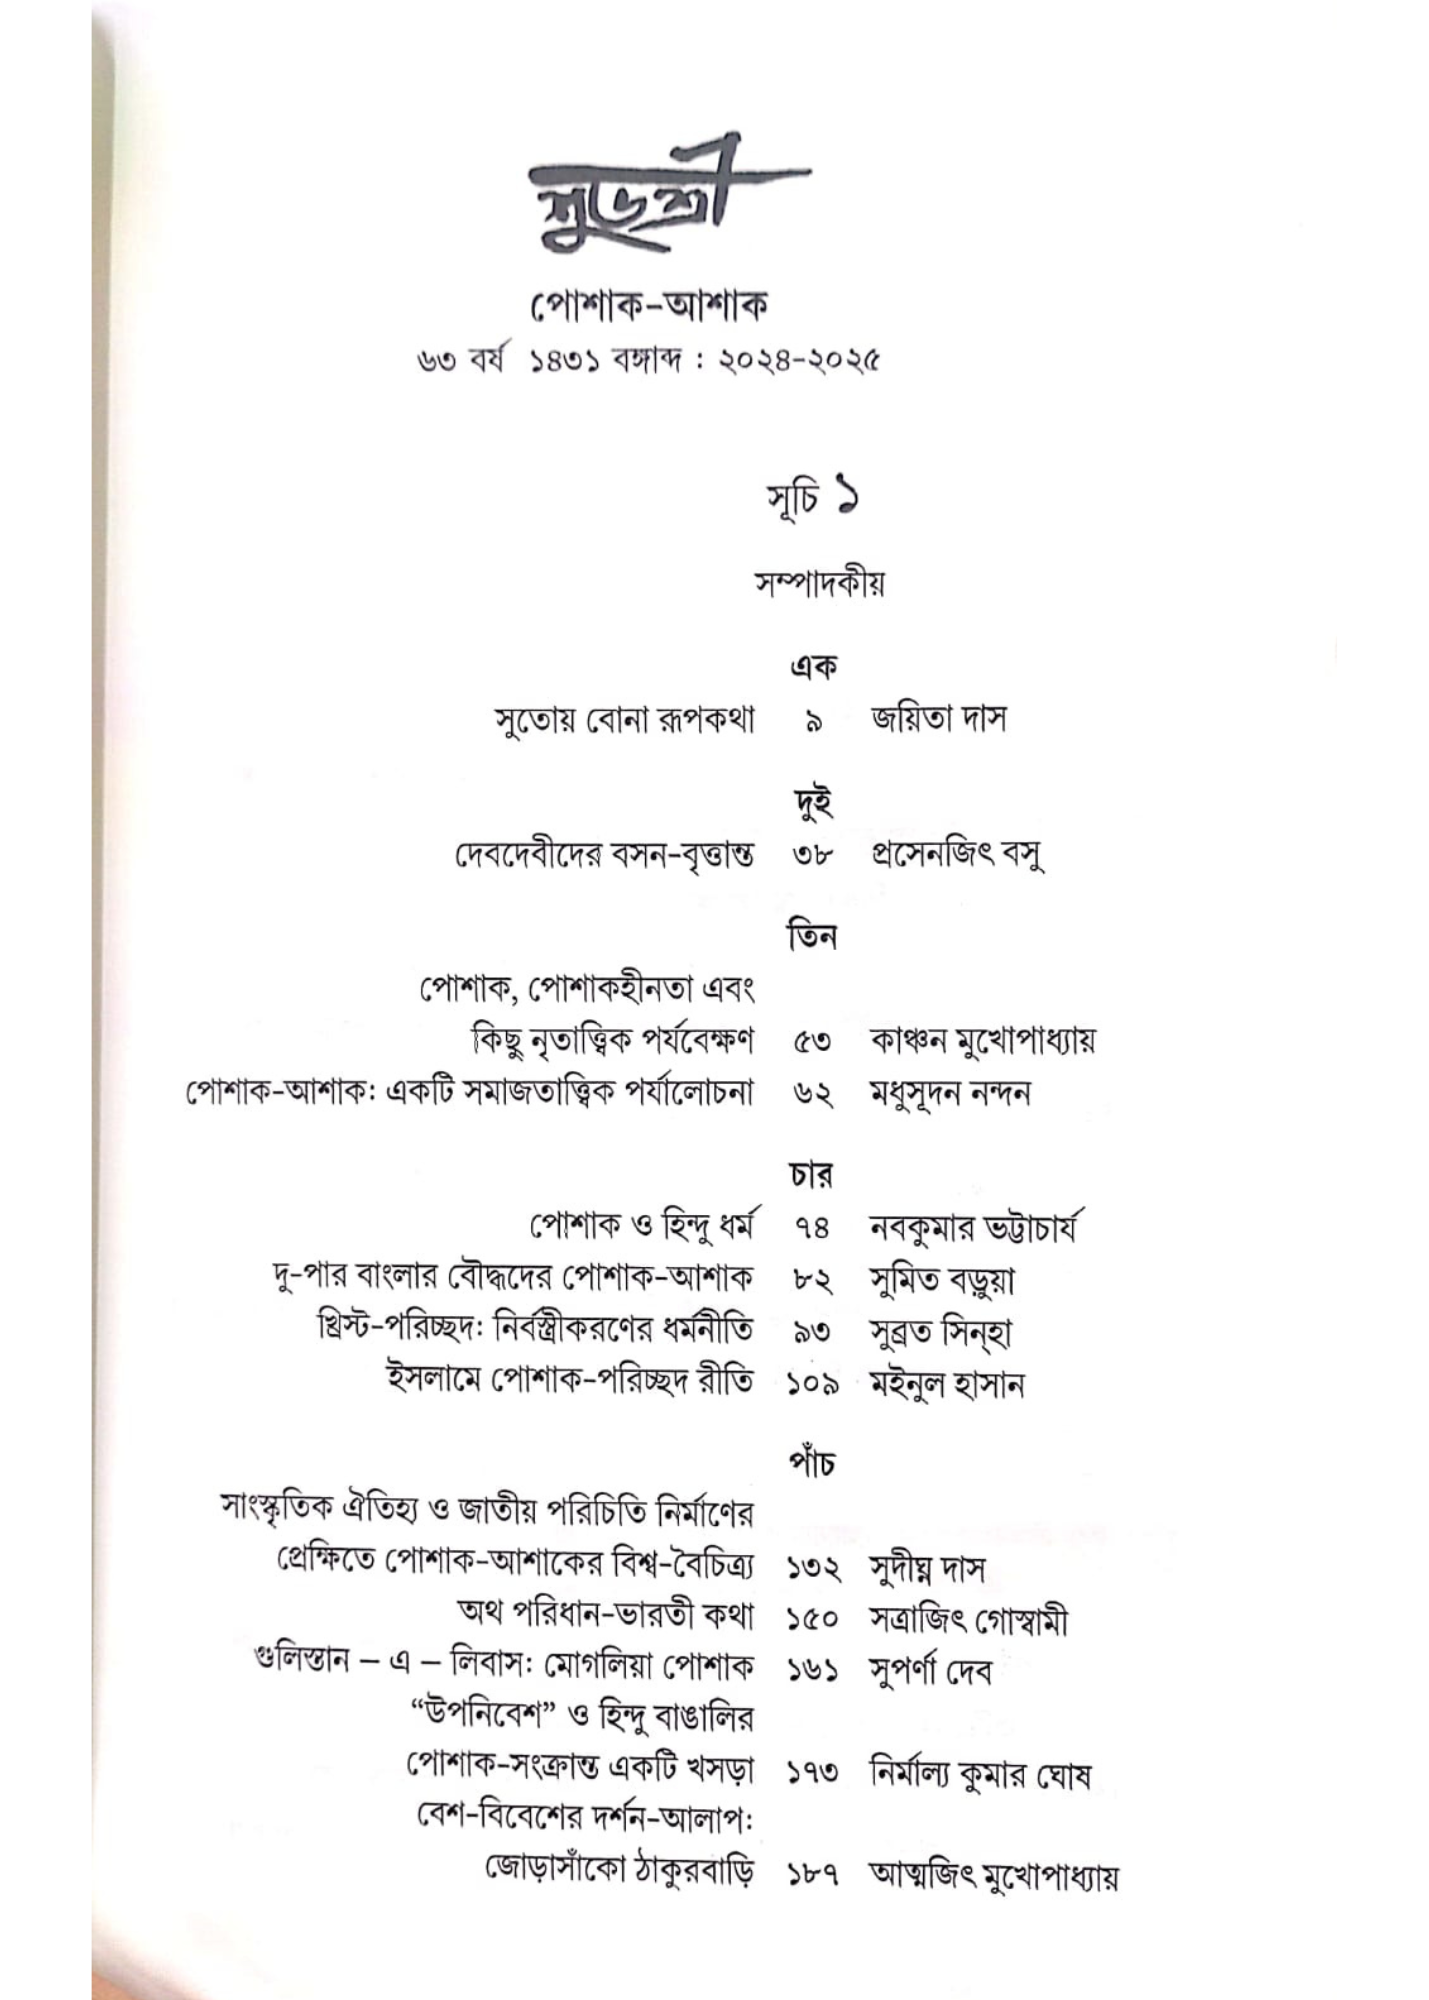 শুভশ্রী
পোশাক-আশাক
৬৩ বর্ষ ১৪৩১ বঙ্গাব্দ : ২০২৪-২০২৫
সূচি ১
সম্পাদকীয়
এক
সুতোয় বোনা রূপকথা ৯ জয়িতা দাস
দুই
দেবদেবীদের বসন-বৃত্তান্ত ৩৮ প্রসেনজিৎ বসু
তিন
পোশাক, পোশাকহীনতা এবং
কিছু নৃতাত্ত্বিক পর্যবেক্ষণ ৫৩ কাঞ্চন মুখোপাধ্যায়
পোশাক-আশাক: একটি সমাজতাত্ত্বিক পর্যালোচনা ৬২ মধুসূদন নন্দন
চার
পোশাক ও হিন্দু ধর্ম ৭৪ নবকুমার ভট্টাচার্য
দু-পার বাংলার বৌদ্ধদের পোশাক-আশাক ৮২ সুমিত বড়ুয়া
খ্রিস্ট-পরিচ্ছদ: নির্বস্ত্রীকরণের ধর্মনীতি ৯৩ সুব্রত সিন্‌হা
ইসলামে পোশাক-পরিচ্ছদ রীতি ১০৯ মইনুল হাসান
পাঁচ
সাংস্কৃতিক ঐতিহ্য ও জাতীয় পরিচিতি নির্মাণের
প্রেক্ষিতে পোশাক-আশাকের বিশ্ব-বৈচিত্র্য ১৩২ সুদীঘ্ন দাস
অথ পরিধান-ভারতী কথা ১৫০ সত্রাজিৎ গোস্বামী
গুলিস্তান – এ – লিবাস: মোগলিয়া পোশাক ১৬১ সুপর্ণা দেব
“উপনিবেশ” ও হিন্দু বাঙালির
পোশাক-সংক্রান্ত একটি খসড়া ১৭৩ নির্মাল্য কুমার ঘোষ
বেশ-বিবেশের দর্শন-আলাপ:
জোড়াসাঁকো ঠাকুরবাড়ি ১৮৭ আত্মজিৎ মুখোপাধ্যায়